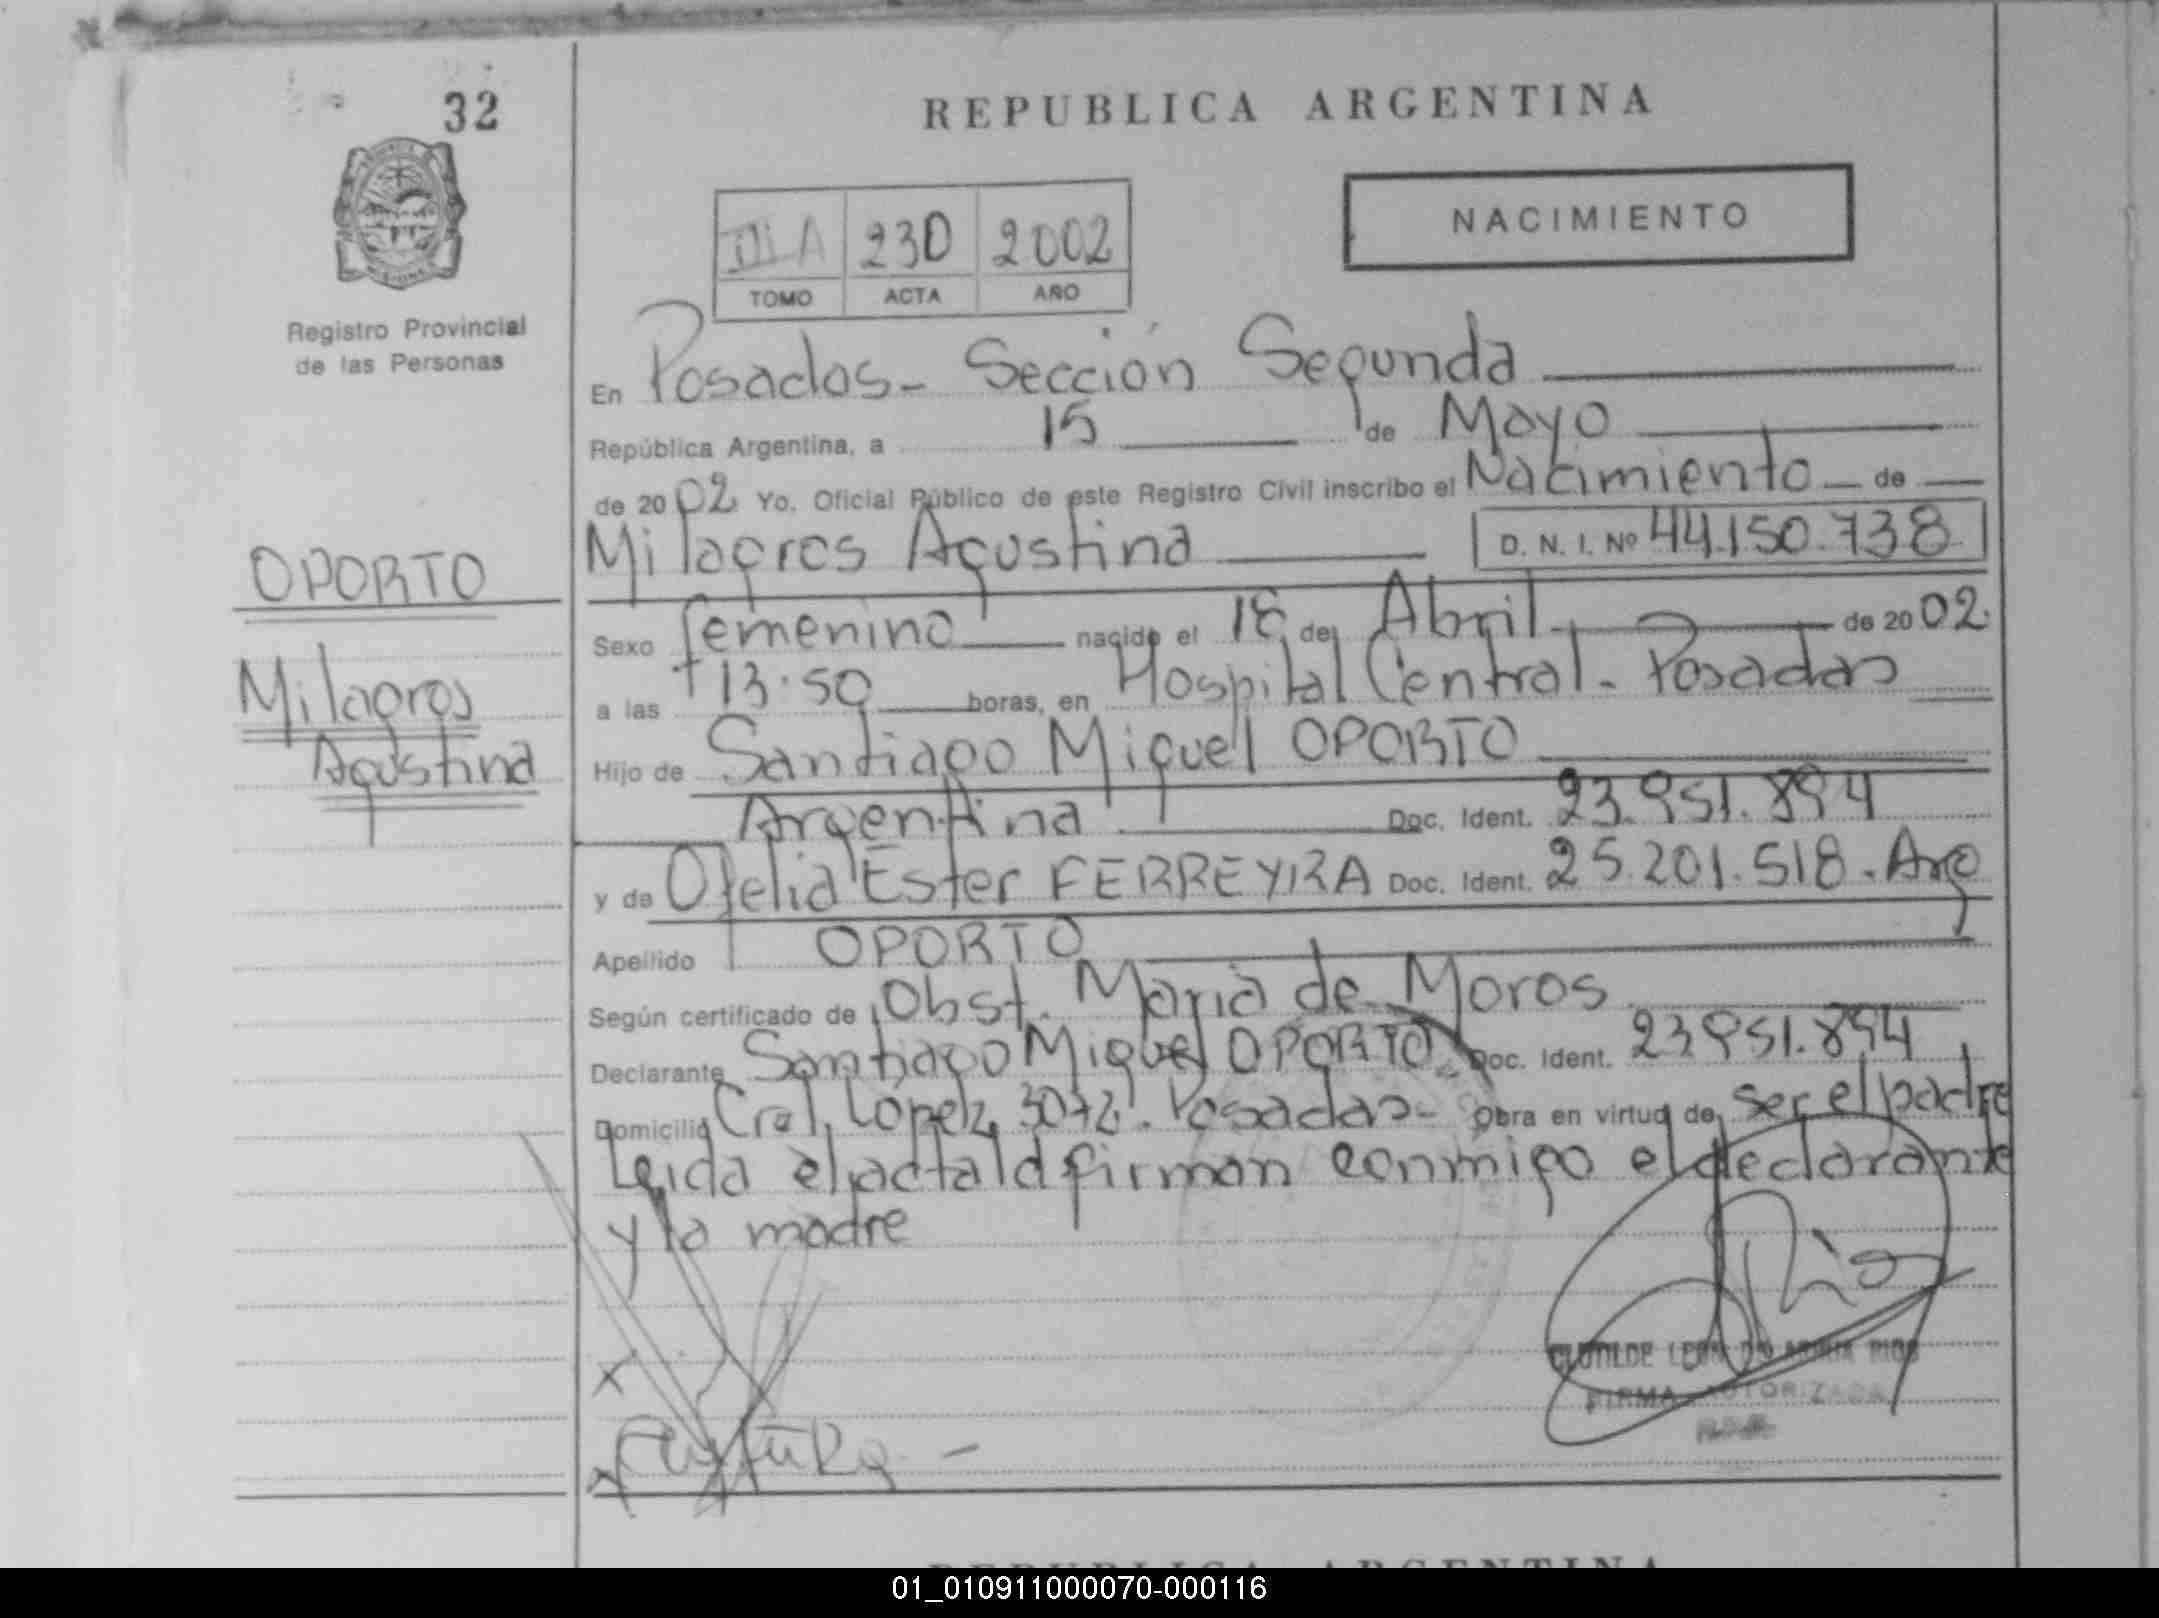 32
REPUBLICA ARGENTINA
NACIMIENTO
III A 230 2002
TOMO ACTA AÑO
Registro Provincial
de las Personas
En Posadas - Sección Segunda
República Argentina, a 15 de Mayo
de 2002 Yo. Oficial Público de este Registro Civil inscribo el Nacimiento de
Milagros Agustina D. N. I. Nº 44.150.738
OPORTO
Milagros
Agustina
Sexo femenino nacido el 18 de Abril de 2002.
a las 13.50 horas, en Hospital Central - Posadas
Hijo de Santiago Miguel OPORTO
Argentina Doc. Ident. 23.951.894
y de Ofelia Ester FERREYRA Doc. Ident. 25.201.518 - Arg
Apellido OPORTO
Según certificado de Obst. Maria de Moros
Declarante Santiago Miguel OPORTO Doc. Ident. 23951.894
Domicilio Cral. López 3072. Posadas - Obra en virtud de ser el padre
Leida el acta la firman conmigo el declarante
y la madre
x
x
CLOTILDE RIOS
FIRMA AUTORIZADA
REPUBLICA ARGENTINA
01_010911000070-000116